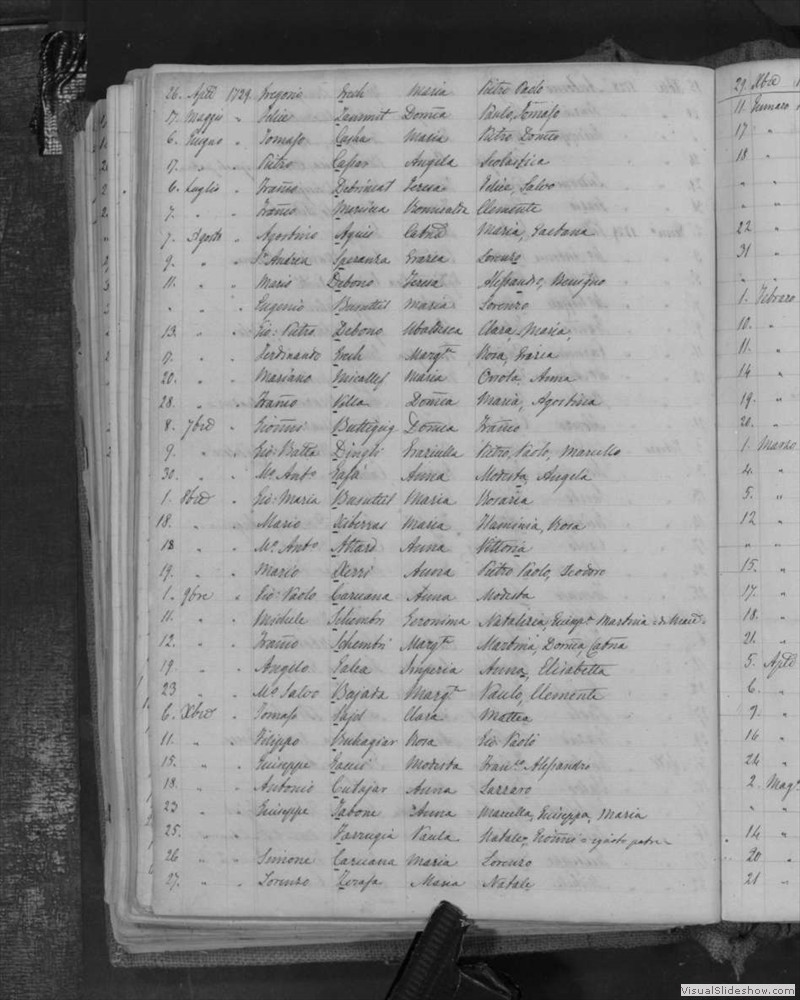 26. Aple 1729. Gregorio Grech Maria Pietro Paolo
17. Maggio " Felice Zammit Domca Paulo, Tomaso
6. Giugno " Tomaso Casha Maria Pietro Domco
17. " " Pietro Caspar Angela Scolastica
6. Luglio " Franco Debrincat Teresa Felice, Salvo
7. " " Franco Clemente
7. Agosto " Agostino Agius Catna Maria, Gaetana
9. " " Pr Andrea Speranza Grazia Lorenzo
11. " " Mario Debono Teresa Alessandro, Benigno
" " " Eugenio Busuttil Maria Lorenzo
13. " " Gio: Pietro Debono Ubaldesca Clara, Maria,
17. " " Ferdinando Grech Margta Rosa, Grazia
20. " " Mariano Micallef Maria Orsola, Anna
28. " " Franco Vella Domca Maria, Agostina
8. 7bre " Gionni Buttigieg Domca Franco
9. " " Gio: Batta Dingli Graziulla Pietro Paolo, Marcello
30. " " Mo Anto Safu Anna Modesta, Angela
1. 8bre " Gio: Maria Busuttil Maria Rosaria
18. " " Mario Xiberras Maria Flaminia, Rosa
18 " " Mo Anto Attard Anna Vittoria
19. " " Mario Xerri Anna Pietro Paolo, Teodoro
1. 9bre " Gio: Paolo Caruana Anna Modesta
11. " " Michele Schembri Geronima Natalizia, Giuspa Martina
12. " " Franco Schembri Margta Martina, Domca, Catna
19. " " Angelo Galea Imperia Anna, Elisabetta
23 " " Mo Salvo Bajada Margta Paulo, Clemente
6. Xbre " Tomaso Pajes Clara Mattea
11. " " Filippo Buhagiar Rosa Gio: Paolo
15. " " Giuseppe Gauci Modesta Franco Alessandro
18. " " Antonio Cutajar Anna Lazzaro
23 " " Giuseppe Tabone Anna Marcella, Giuseppa, Maria
25. " " Farrugia Paula Natale, Gionni
26 " " Simone Caruana Maria Lorenzo
27. " " Lorenzo Maria Natale
29 Xbre
11. Gennaro
17 "
18 "
" "
" "
22 "
31 "
" "
1. Febraro
10. "
11. "
14 "
19. "
20. "
1. Marzo
4. "
5. "
12 "
" "
15. "
17. "
18. "
21. "
5. Aple
6. "
9. "
16 "
24 "
2. Mago
" "
14 "
20 "
21 "
VisualSlideshow.com